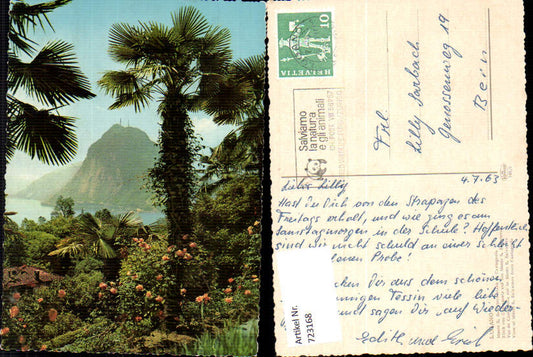 Artikel Nr.
723168
HELVETIA
10
Salviamo
la natura
e gli animali
Frl.
Lilly Sarbach
Genossenweg 19
Bern
4.7.63
Liebes Lilly
Hast Du Dich von den Strapazen des
Freitags erholt, und wie ging es am
Samstagmorgen in der Schule? Hoffentlich
sind wir nicht schuld an einer schlecht
Probe!
Dir aus dem schönen
Tessin viele liebe
und sagen Dir "auf Wieder-
Edith und
Artikel Nr.
723168